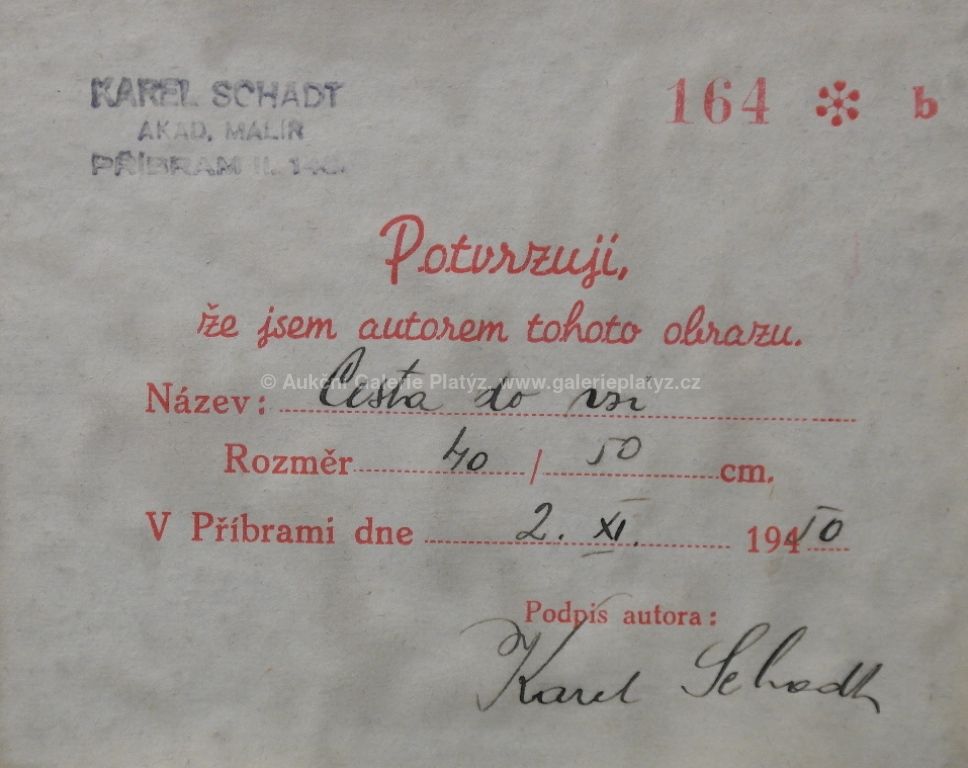 KAREL SCHADT
AKAD. MALÍŘ
PŘÍBRAM II. 140.
164 ✻ b
Potvrzuji,
že jsem autorem tohoto obrazu.
© Aukční Galerie Platýz, www.galerieplatyz.cz
Název: Cesta do vsi
Rozměr 40 / 50 cm.
V Příbrami dne 2. XI. 1940 50
Podpis autora:
Karel Schadt